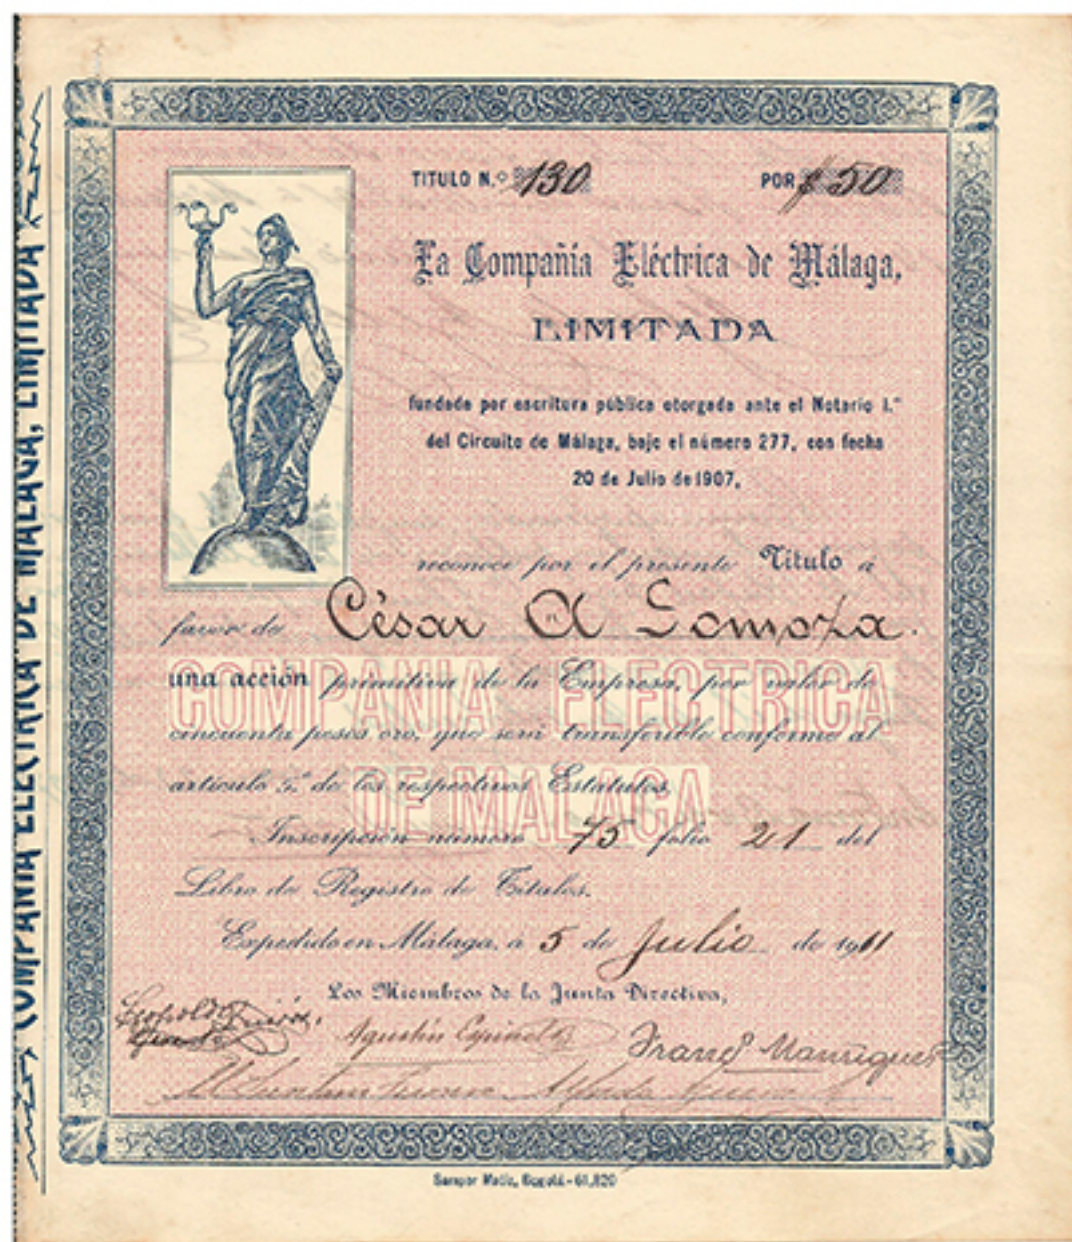 TITULO N.º 130 POR $ 50
La Compañía Eléctrica de Málaga,
LIMITADA
fundada por escritura pública otorgada ante el Notario 1.º
del Circuito de Málaga, bajo el número 277, con fecha
20 de Julio de 1907,
reconoce por el presente Título á
favor de César A Somoza.
una acción primitiva de la Empresa, por valor de
cincuenta pesos oro, que será transferible conforme al
artículo 5.º de los respectivos Estatutos.
COMPAÑIA ELECTRICA
DE MALAGA
Inscripción número 75 folio 21 del
Libro de Registro de Títulos.
Expedido en Málaga, á 5 de Julio de 1911
Los Miembros de la Junta Directiva,
Agustín Espinel
Franco Manrique
Samper Matiz, Bogotá - 61,820
COMPAÑIA ELECTRICA DE MALAGA, LIMITADA